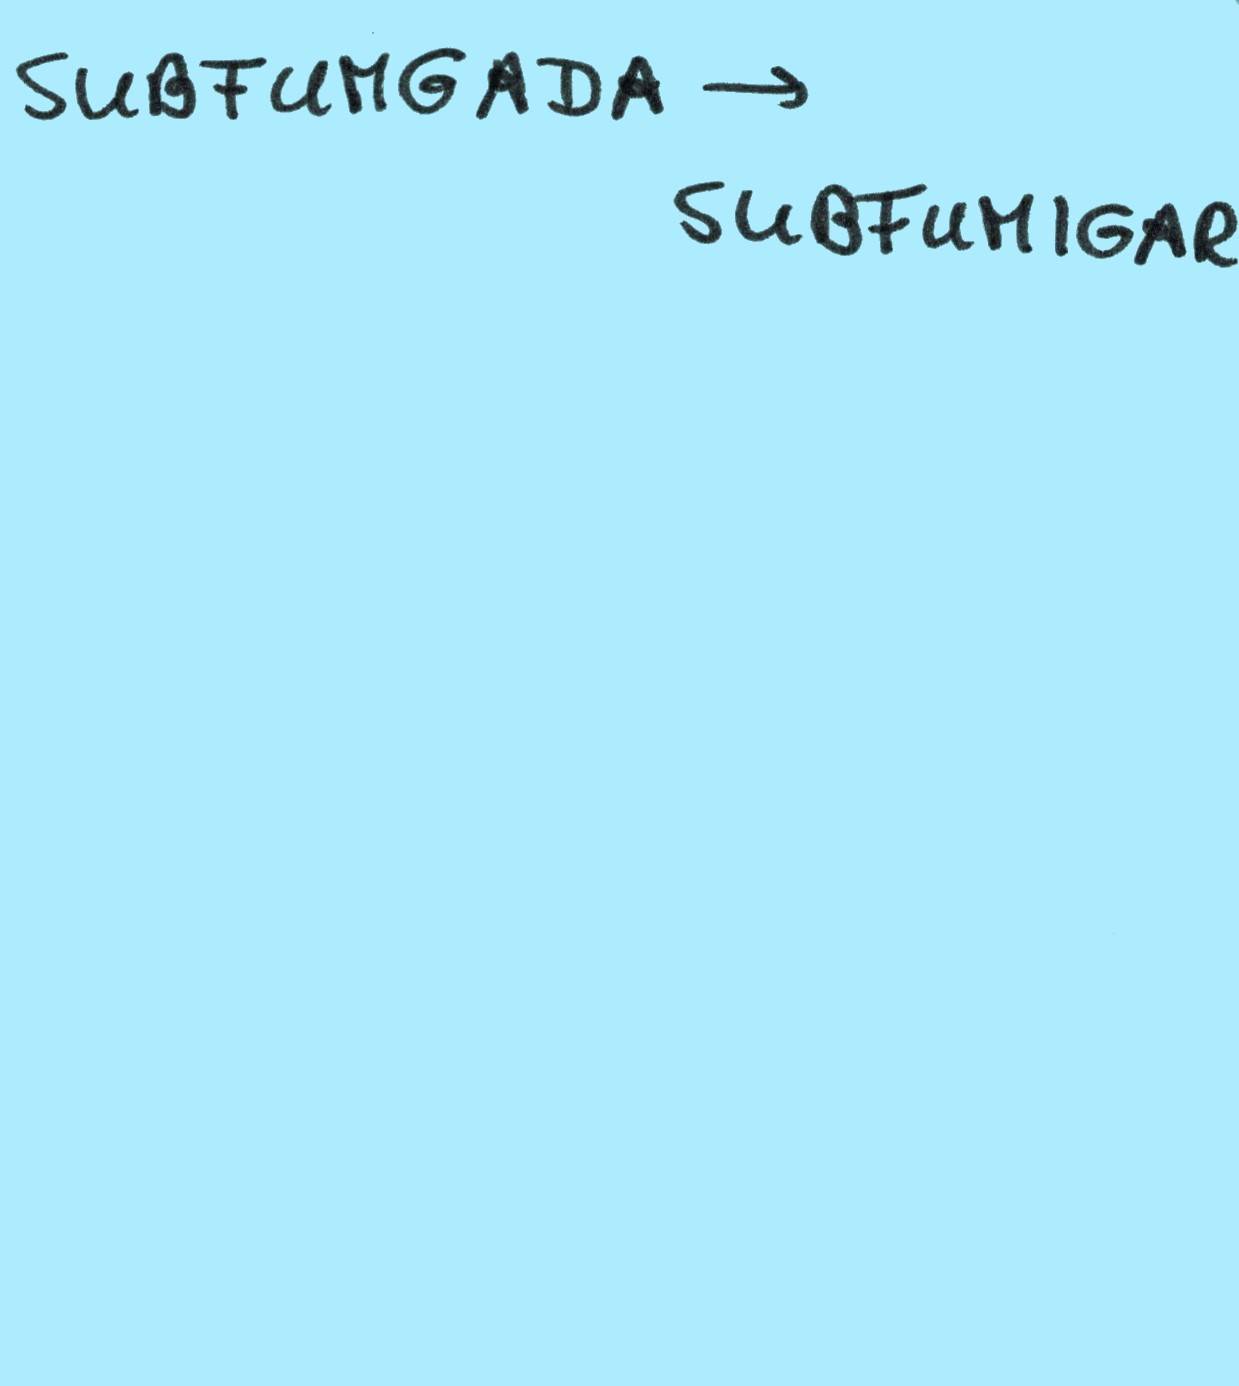 SUBFUMGADA →
SUBFUMIGAR